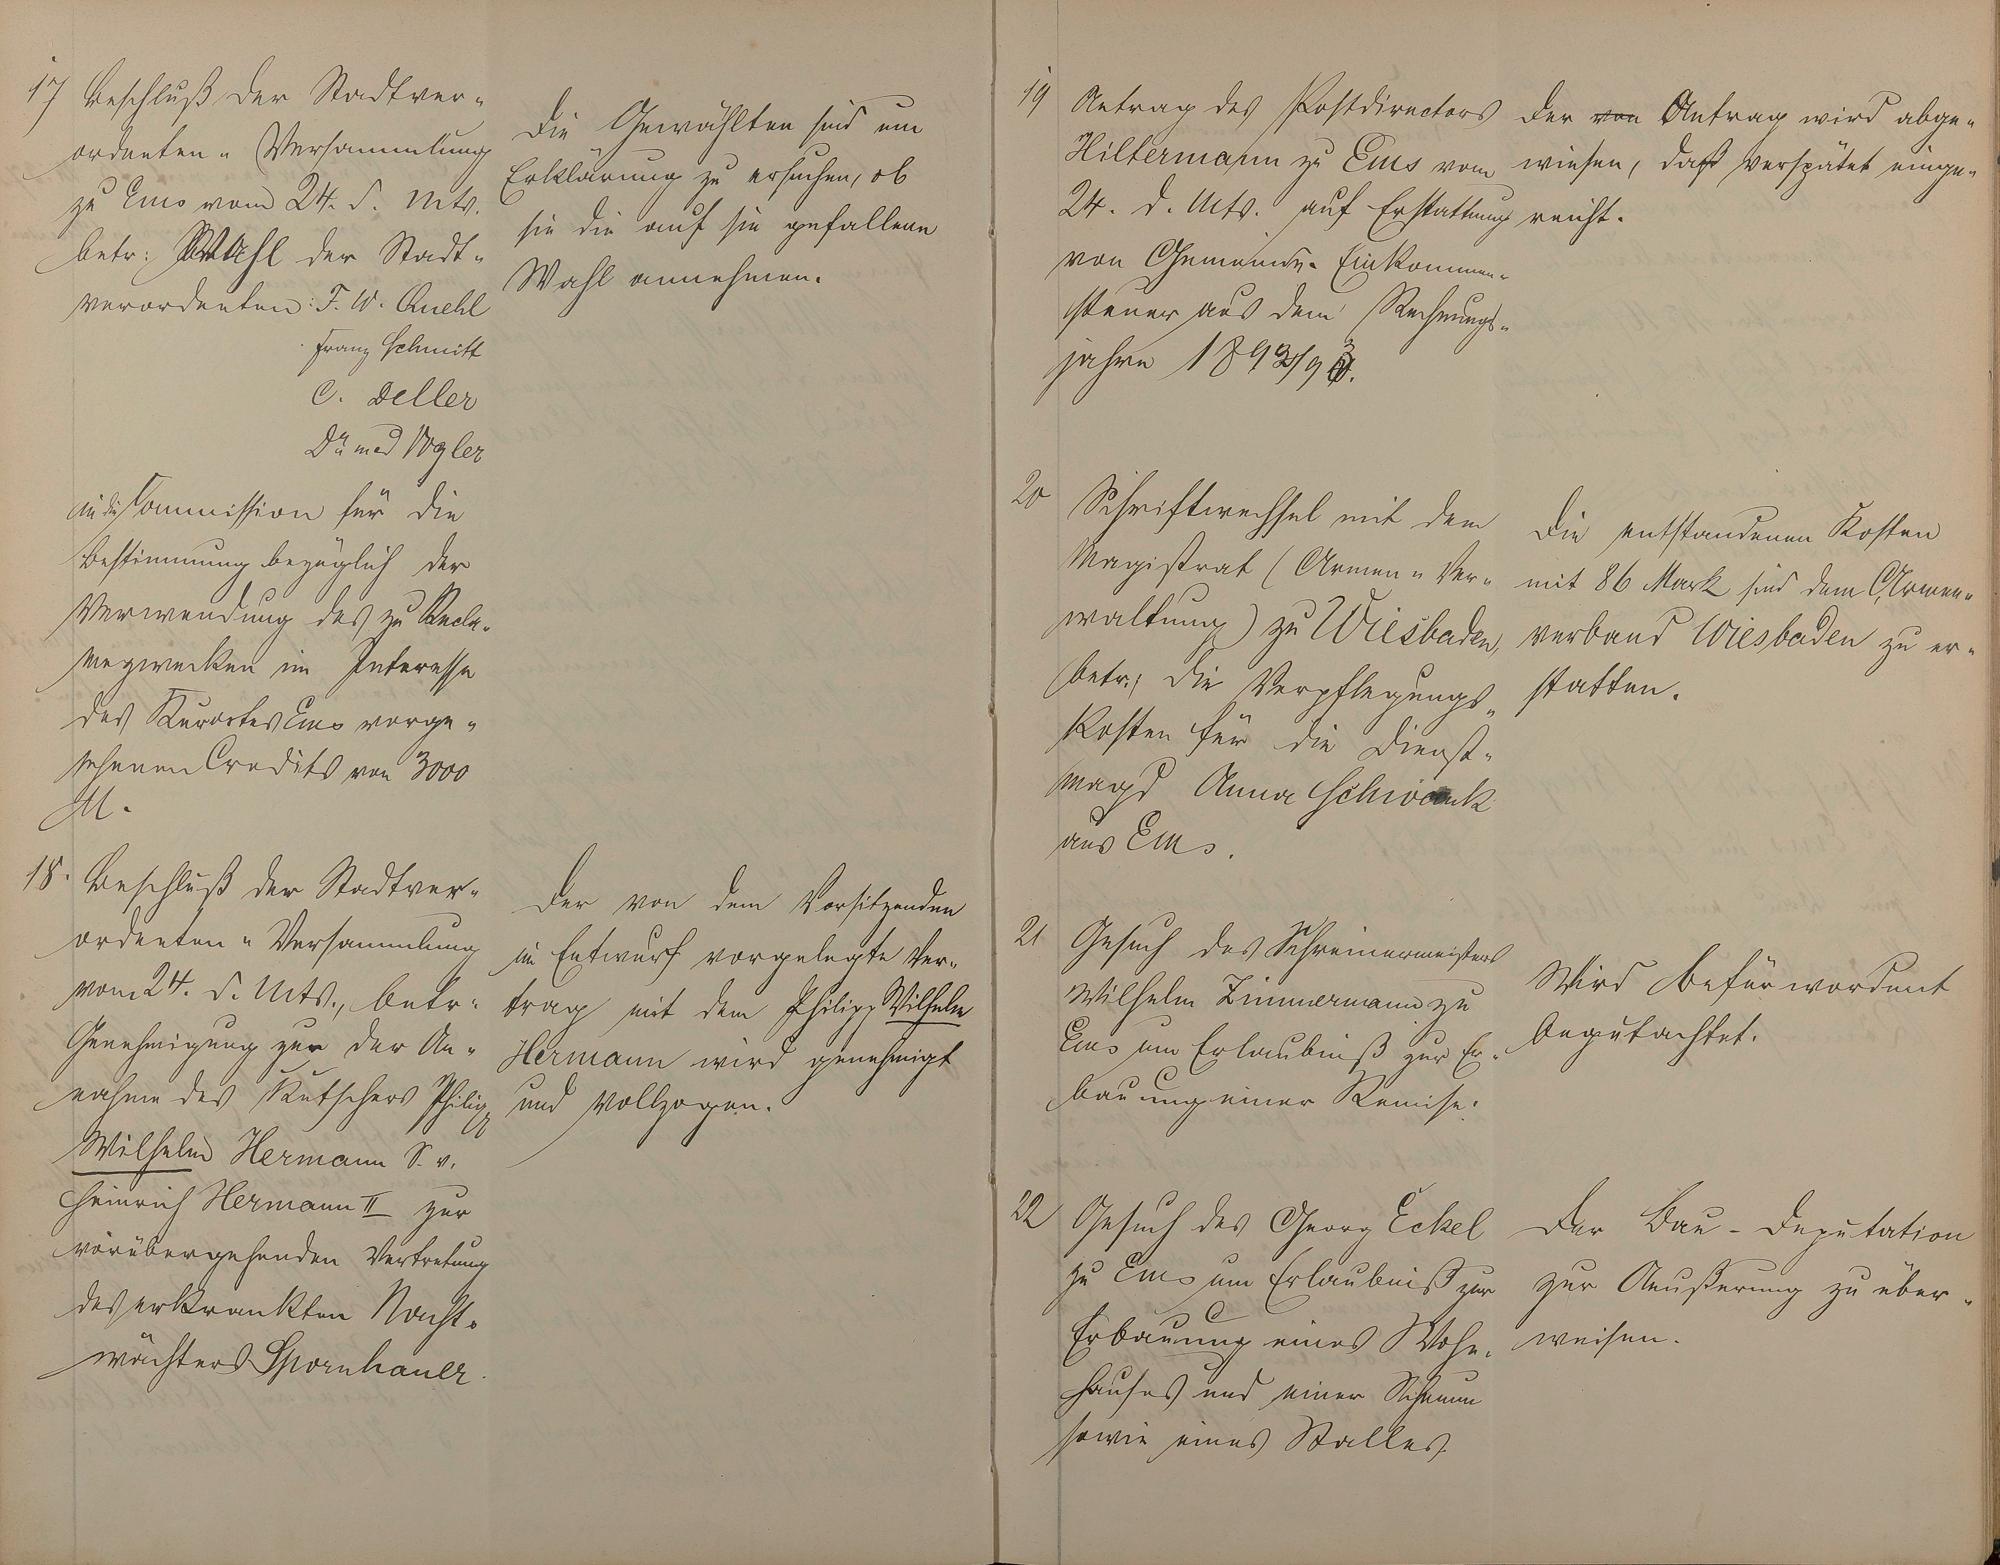 17 Beschluß der Stadtver-
ordneten-Versammlung
zu Ems vom 24. d. Mts.
betr: Wahl der Stadt-
verordneten: F. W. Quehl
Franz Schmitt
C. Deller
Dr. med Vogler
in die Commission für die
Bestimmung bezüglich der
Verwendung des zu Recla-
mezwecken im Interesse
des Kurortes Ems vorge-
sehenen Credits von 3000
M.
Die Gewählten sind um
Erklärung zu ersuchen, ob
sie die auf sie gefallene
Wahl annehmen.
18. Beschluß der Stadtver-
ordneten-Versammlung
vom 24. d. Mts., betr.
Genehmigung zur der An-
nahme des Kutschers Philipp
Wilhelm Hermann S. v.
Heinrich Hermann II zur
vorübergehenden Vertretung
des erkrankten Nacht-
wächters Spornhauer.
Der von dem Vorsitzenden
im Entwurf vorgelegte Ver-
trag mit dem Philipp Wilhelm
Hermann wird genehmigt
und vollzogen.
19 Antrag des Postdirectors
Hiltermann zu Ems vom
24. d. Mts. auf Erstattung
von Gemeinde-Einkommen-
steuer aus dem Rechnungs-
jahre 1892/93.
Der von Antrag wird abge-
wiesen, daß verspätet einge-
reicht.
20 Schriftwechsel mit dem
Magistrat (Armen-Ver-
waltung) zu Wiesbaden,
betr.; die Verpflegungs-
kosten für die Dienst-
magd Anna
aus Ems.
Die entstandenen Kosten
mit 86 Mark sind dem Armen-
verband Wiesbaden zu er-
statten.
21 Gesuch des Schreinermeisters
Wilhelm Zimmermann zu
Ems um Erlaubniß zur Er-
bauung einer Remise.
Wird befürwordent
begutachtet.
22 Gesuch des Georg Eckel
zu Ems um Erlaubniß zur
Erbauung eines Wohn-
hauses und einer Scheune
sowie eines Stalles.
Der Bau-Deputation
zur Aeußerung zu über-
weisen.